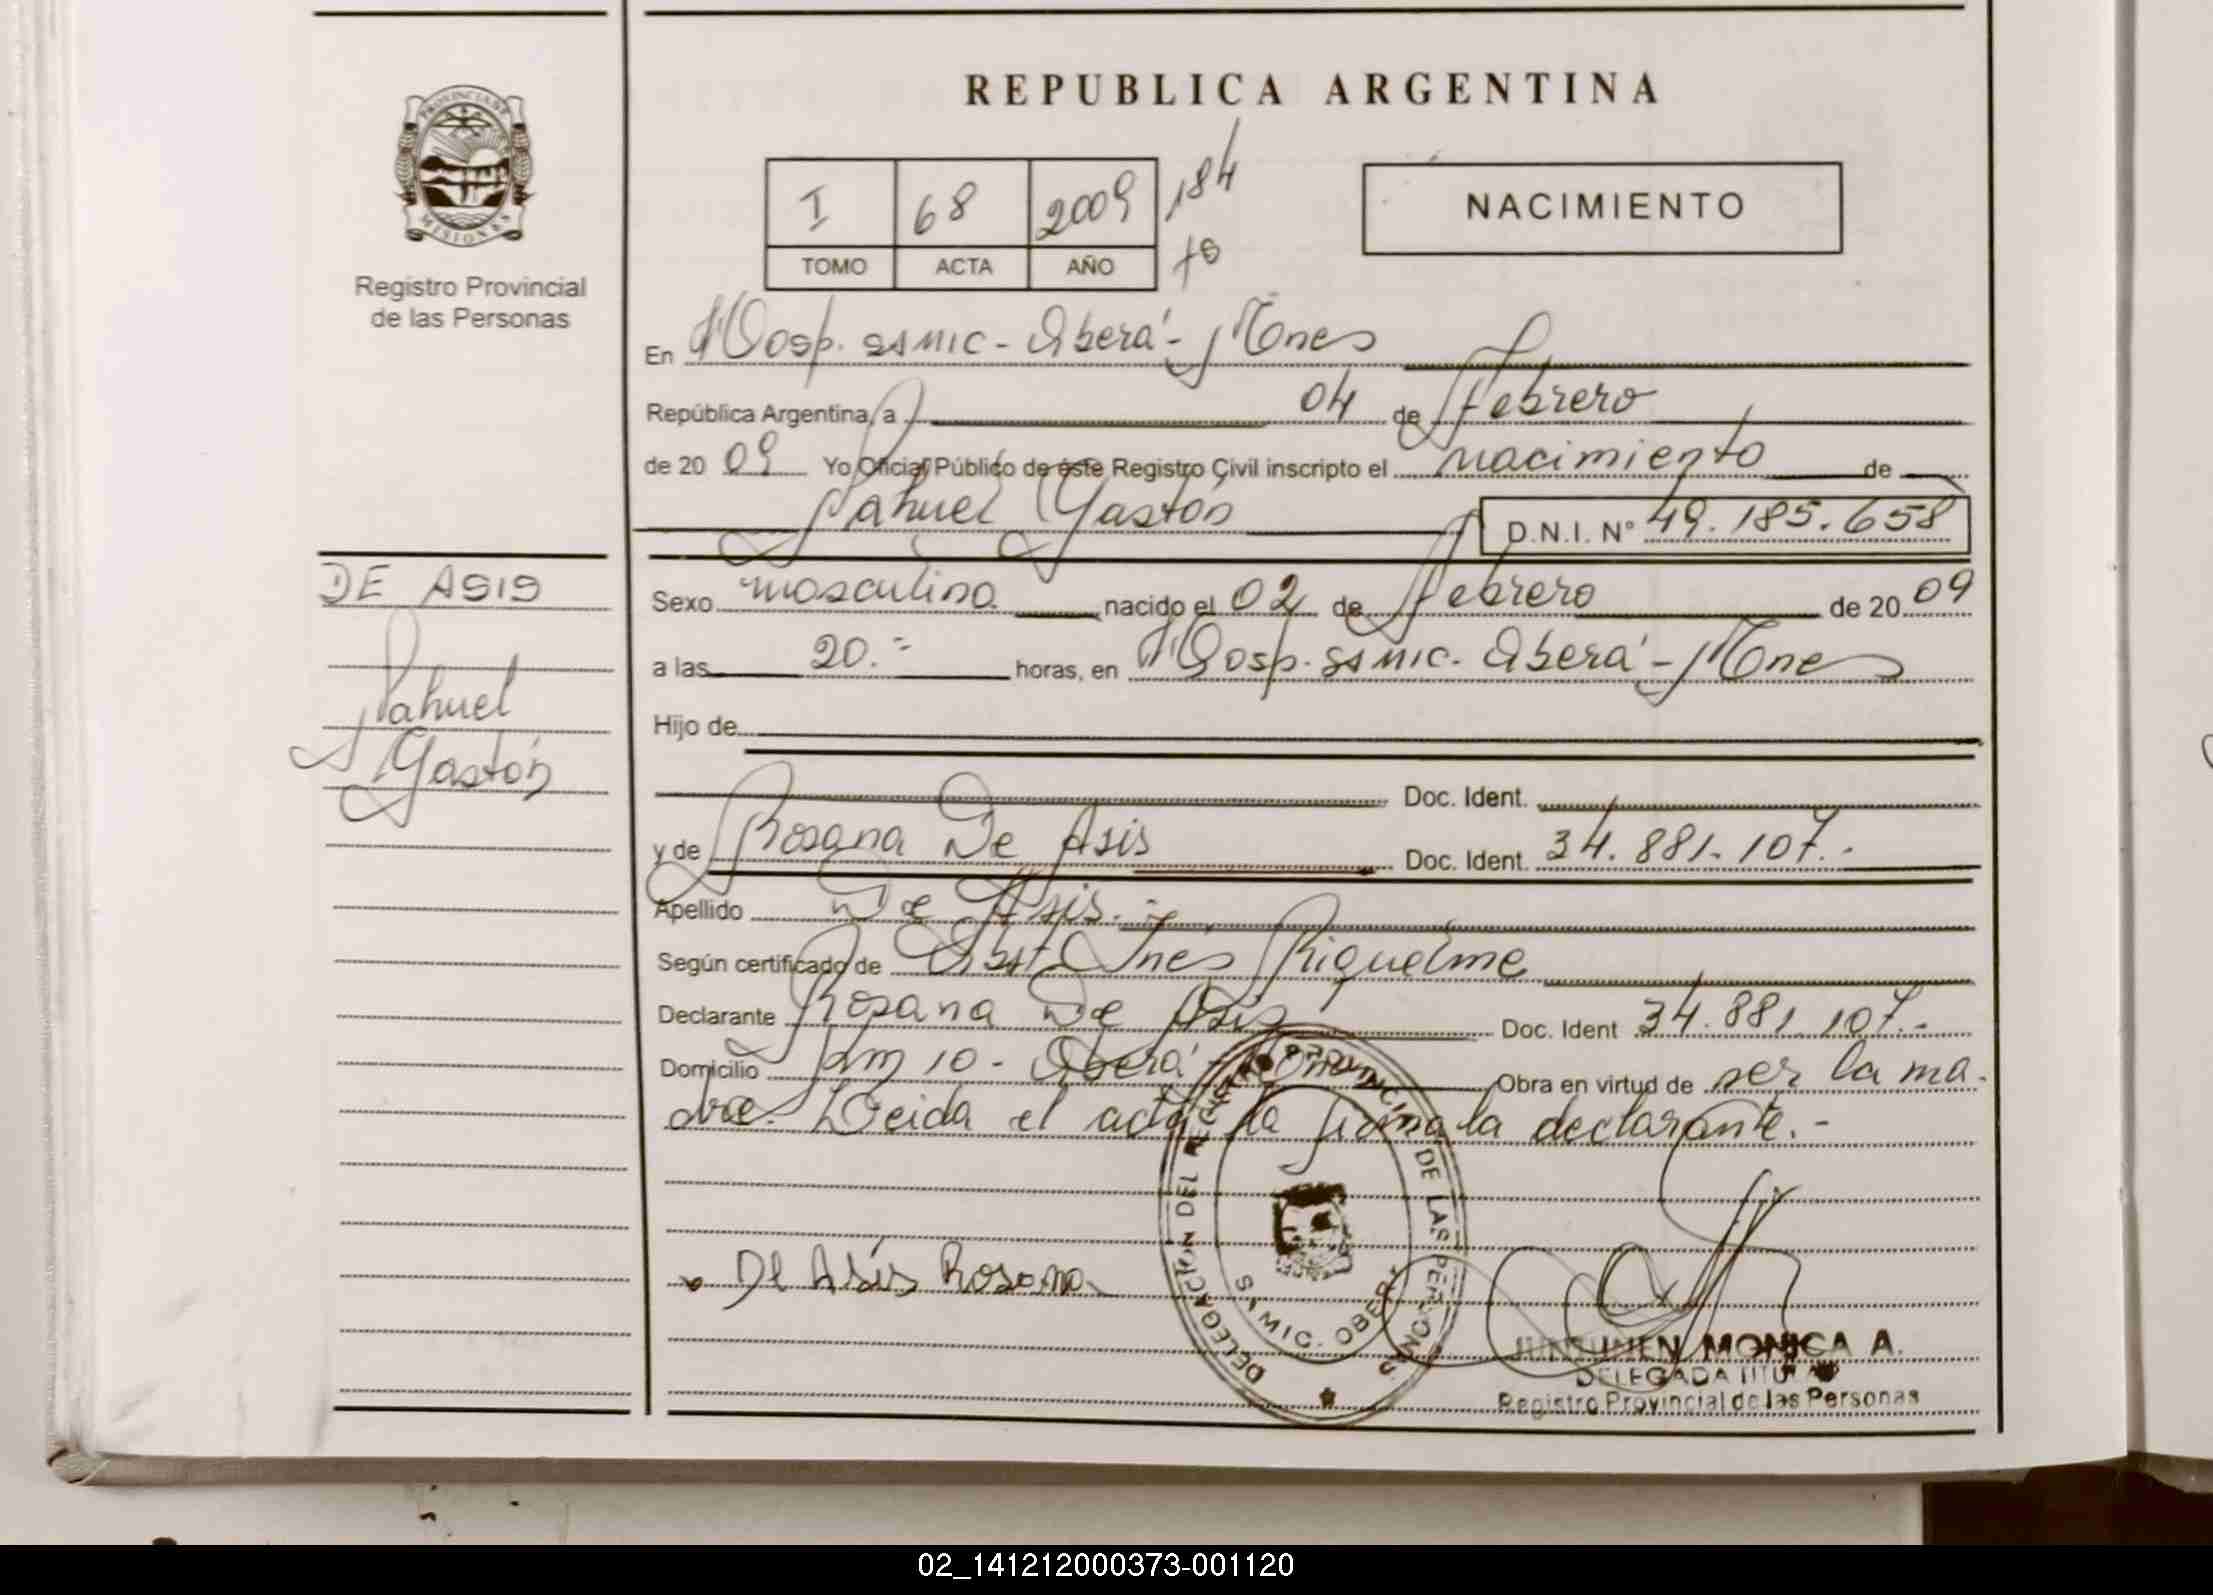 REPUBLICA ARGENTINA
PROVINCIA DE
MISIONES
Registro Provincial
de las Personas
I 68 2009 184
TOMO ACTA AÑO
NACIMIENTO
En Hosp. SAMIC - Oberá - Mnes
República Argentina, a 04 de Febrero
de 20 09 Yo Oficial Público de éste Registro Civil inscripto el nacimiento de
Nahuel Gastón D.N.I. Nº 49.185.658
DE ASIS
Nahuel
Gastón
Sexo masculino nacido el 02 de Febrero de 20 09
a las 20.= horas, en Hosp. SAMIC. Oberá - Mnes
Hijo de
Doc. Ident.
y de Rosana De Asis Doc. Ident. 34.881.107.-
Apellido De Asis.-
Según certificado de Obst. Inés Riquelme
Declarante Rosana De Asis Doc. Ident 34.881.107.-
Domicilio Km 10 - Oberá - Mnes Obra en virtud de ser la ma-
dre. Leida el acta la firma la declarante.-
De Asís Rosana
DELEGACION DEL REGISTRO PROVINCIAL DE LAS PERSONAS
SAMIC. OBERA
MONICA A.
DELEGADA TITULAR
Registro Provincial de las Personas
02_141212000373-001120